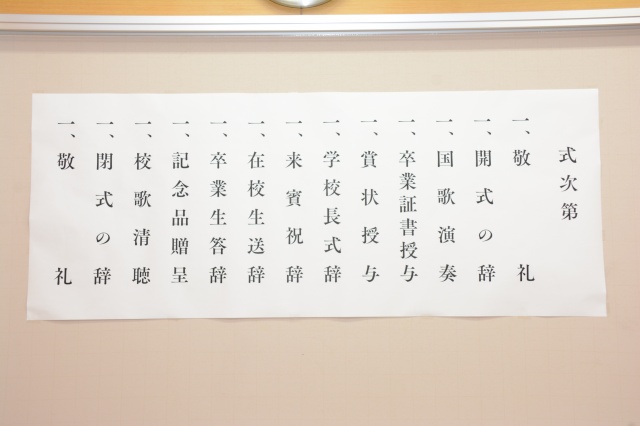 式次第
一、敬礼
一、開式の辞
一、国歌演奏
一、卒業証書授与
一、賞状授与
一、学校長式辞
一、来賓祝辞
一、在校生送辞
一、卒業生答辞
一、記念品贈呈
一、校歌清聴
一、閉式の辞
一、敬礼